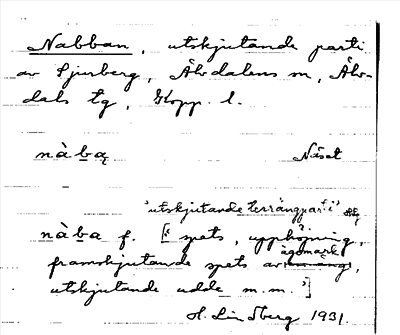 Nabban, utskjutande parti
av Ljusberg, Älvdalens sn, Älv-
dals tg, Kopp. l.
nàbą Näset
'utskjutande terrängparti'
nàba f. [‘spets, upphöjning,
ägomark
framskjutande spets av
utskjutande udde m.m.’]
H. Lindberg 1931.